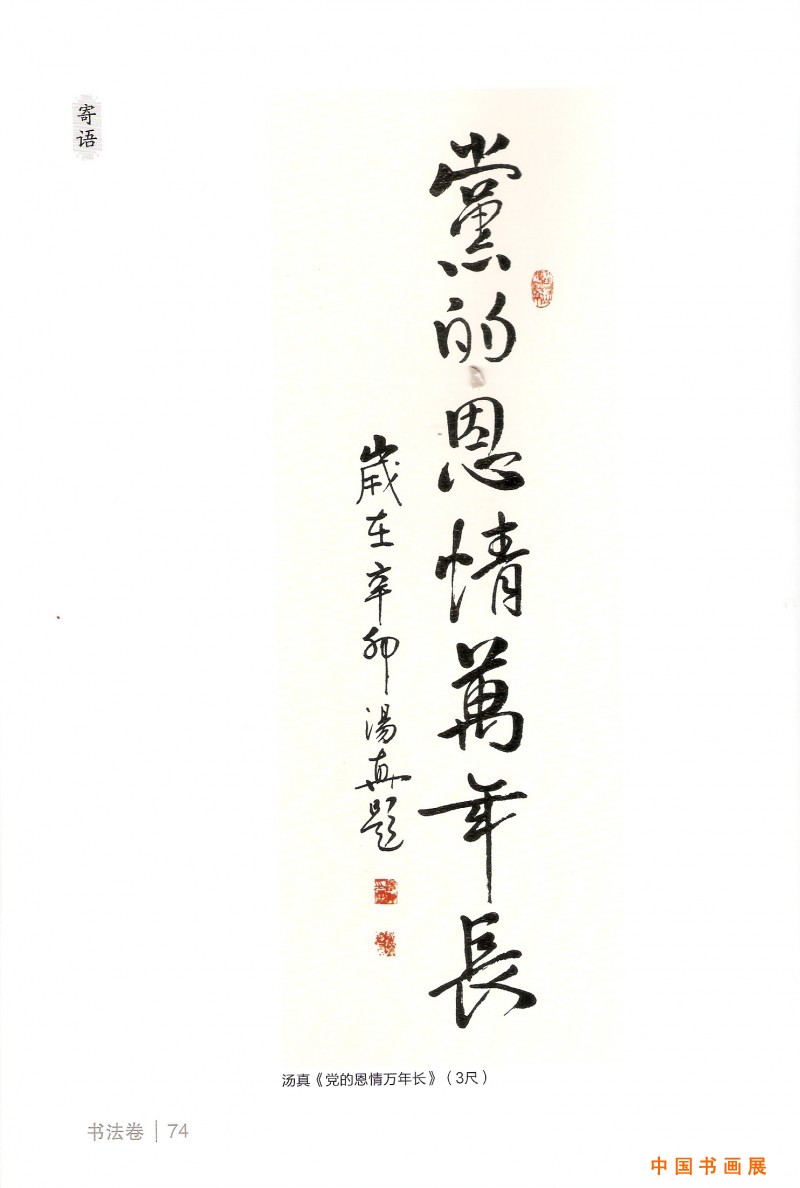 寄语
黨的恩情萬年長
歲在辛卯湯真題
汤真《党的恩情万年长》（3尺）
书法卷 | 74
中国书画展